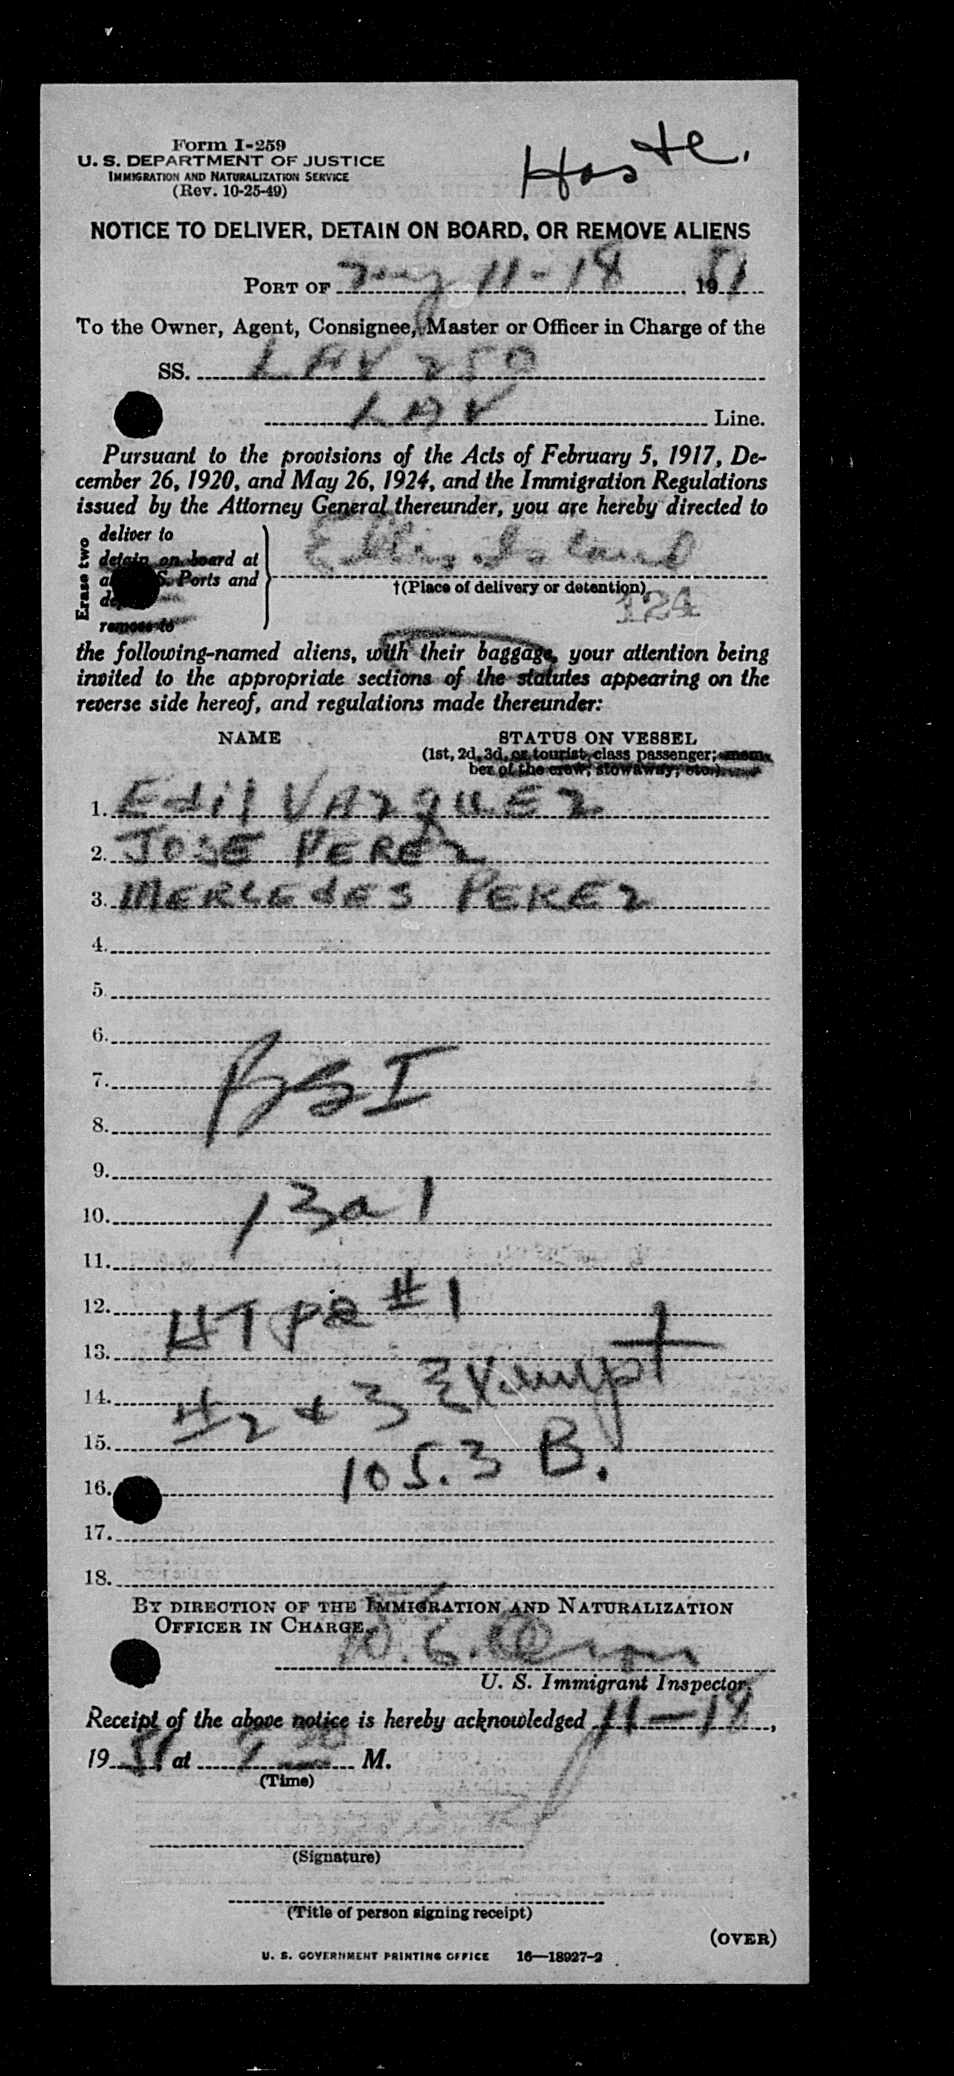 Form I-259
U. S. DEPARTMENT OF JUSTICE
IMMIGRATION AND NATURALIZATION SERVICE
(Rev. 10-25-49)
NOTICE TO DELIVER, DETAIN ON BOARD, OR REMOVE ALIENS
PORT OF 11-18 1951
To the Owner, Agent, Consignee, Master or Officer in Charge of the
SS. LAV 250
LAV Line.
Pursuant to the provisions of the Acts of February 5, 1917, De-
cember 26, 1920, and May 26, 1924, and the Immigration Regulations
issued by the Attorney General thereunder, you are hereby directed to
Erase two
deliver to
detain on board at
S. Ports and
remove to
Ellis Island
†(Place of delivery or detention)
124
the following-named aliens, with their baggage, your attention being
invited to the appropriate sections of the statutes appearing on the
reverse side hereof, and regulations made thereunder:
NAME STATUS ON VESSEL
(1st, 2d, 3d, or tourist class passenger; mem-
ber of the crew, stowaway, etc.)
1. Edil VAZQUEZ
2. JOSE PEREZ
3. MERCEDES PEREZ
4.
5.
6.
7. BSI
8.
9.
10. 13a1
11.
12. HT #1
13.
14. #2 & 3 Exempt
15. 105.3 B.
16.
17.
18.
BY DIRECTION OF THE IMMIGRATION AND NATURALIZATION
OFFICER IN CHARGE.
U. S. Immigrant Inspector.
Receipt of the above notice is hereby acknowledged 11-18,
1951 at M.
(Time)
(Signature)
(Title of person signing receipt)
(OVER)
U. S. GOVERNMENT PRINTING OFFICE 16—18927-2